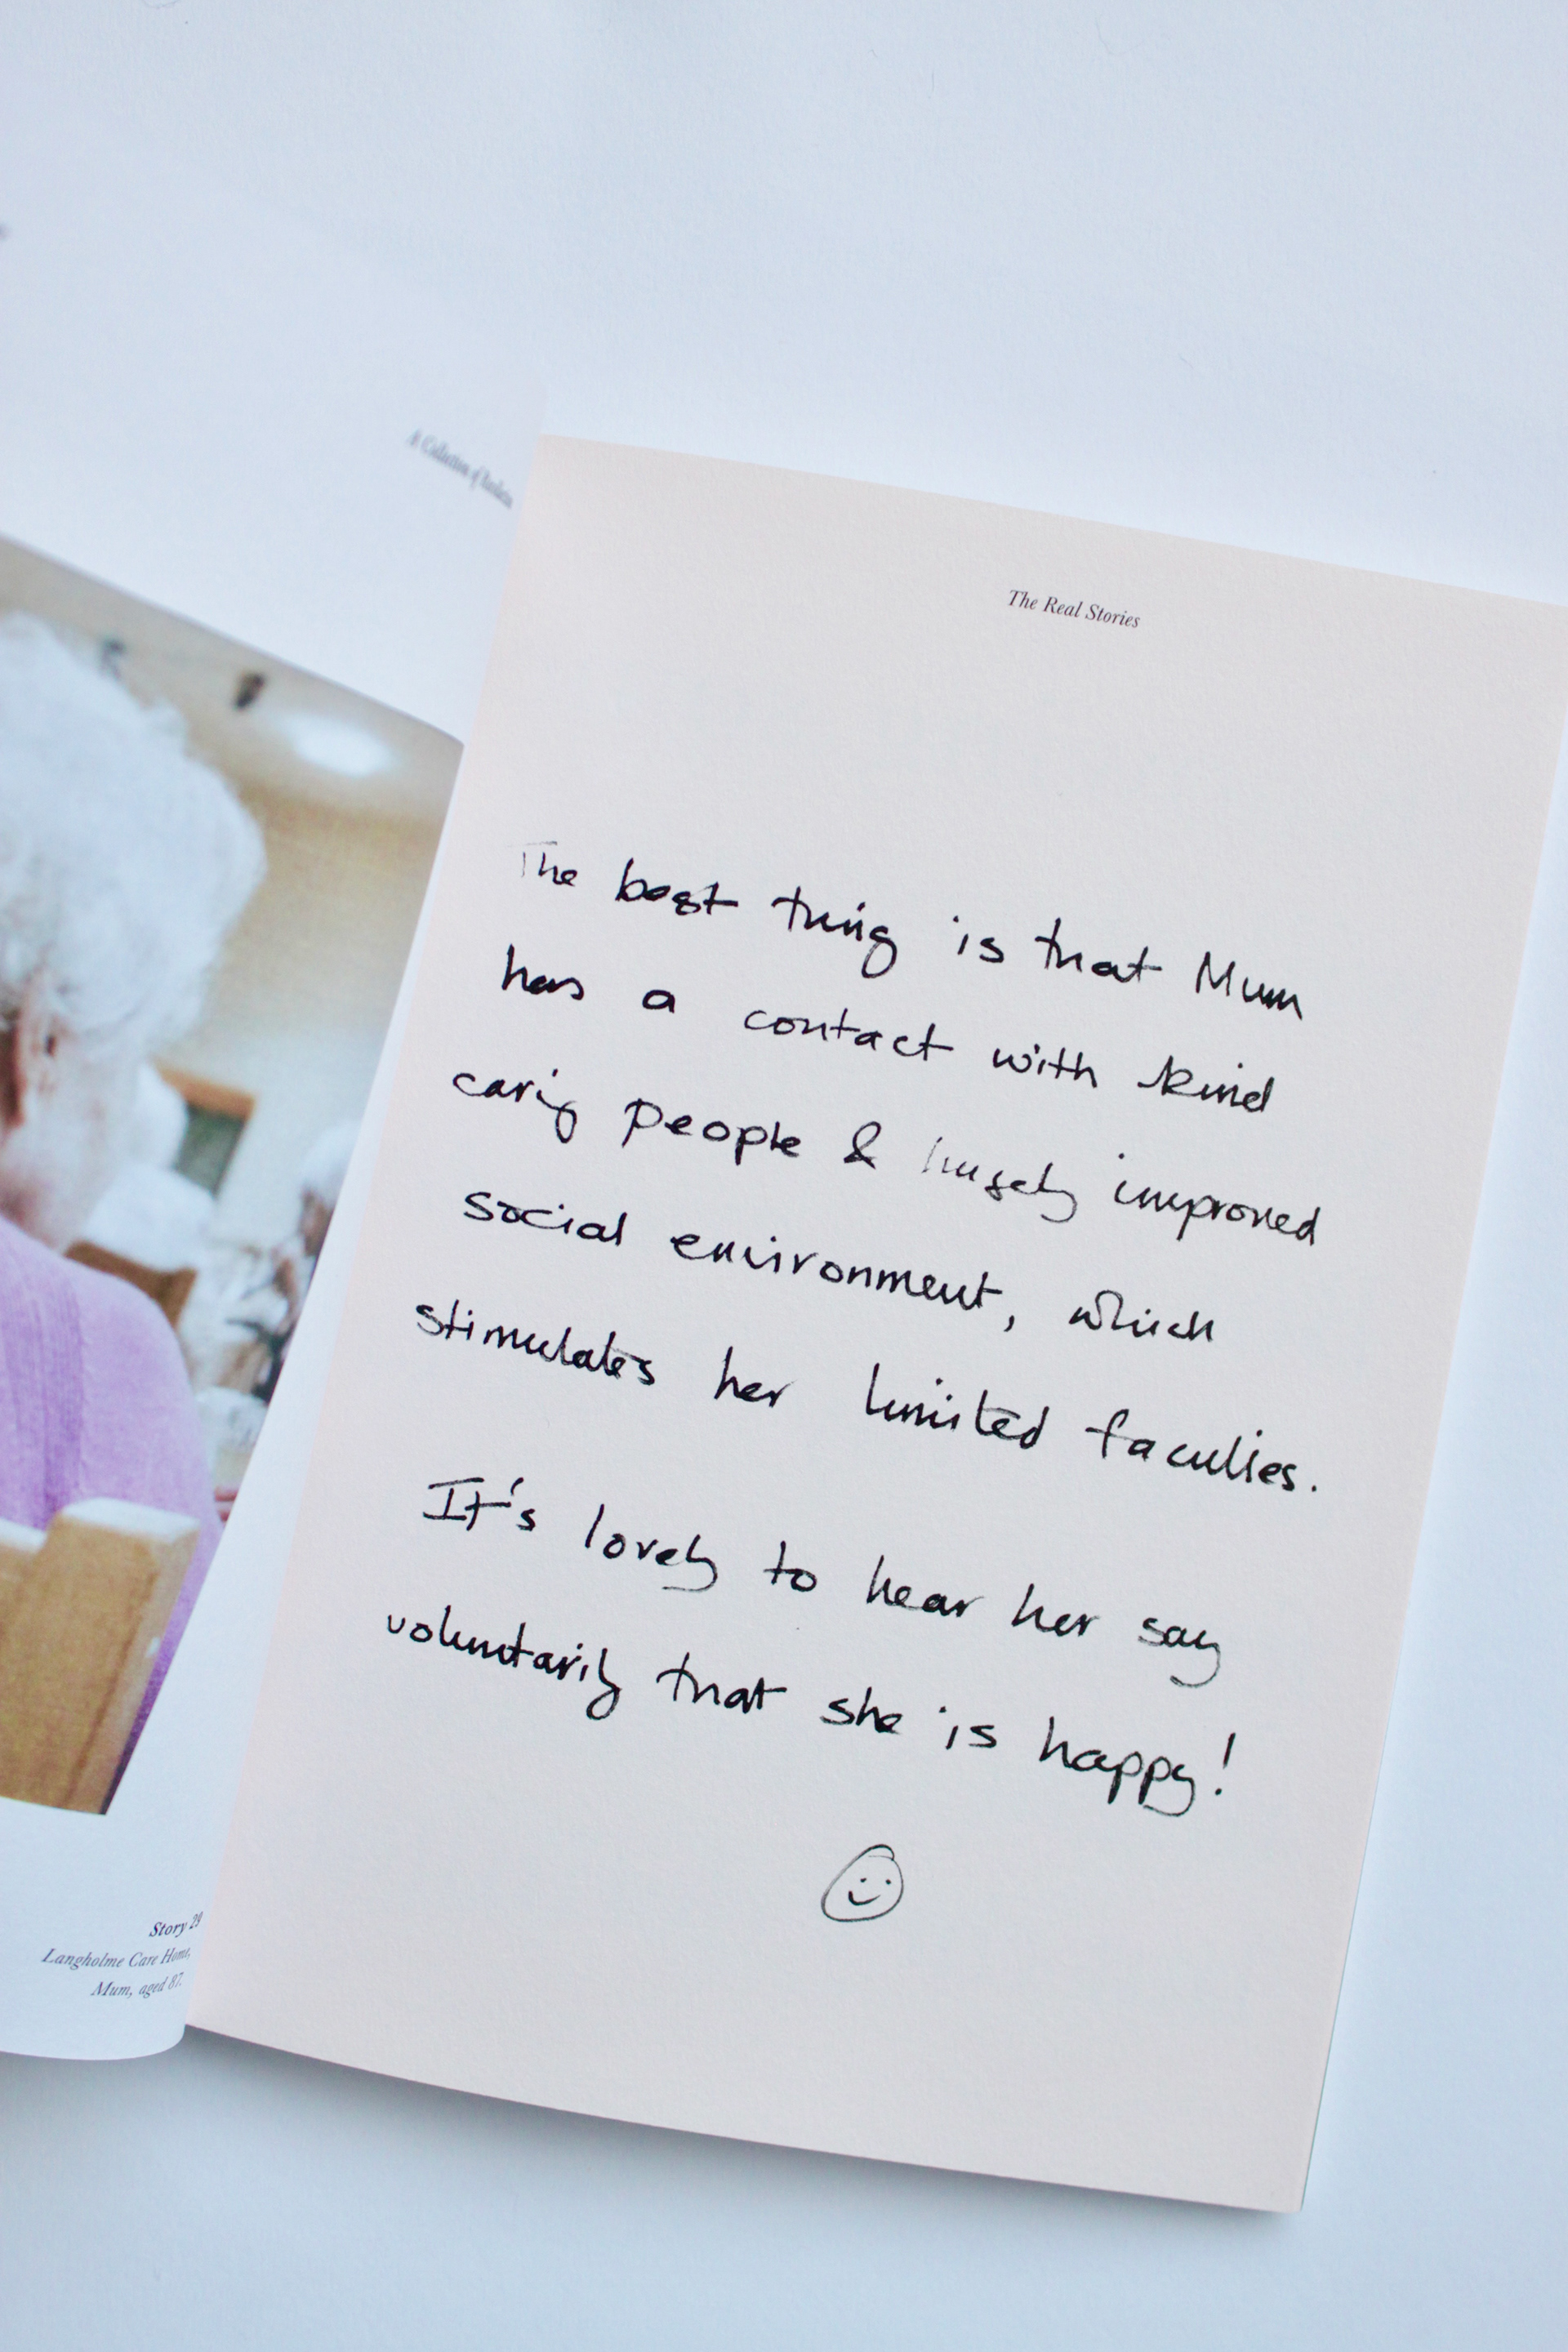 A Collection of
The Real Stories
The best thing is that Mum
has a contact with kind
caring people & hugely improved
social environment, which
stimulates her limited faculties.
It's lovely to hear her say
voluntarily that she is happy!
Story 29
Langholme Care Home,
Mum, aged 87.